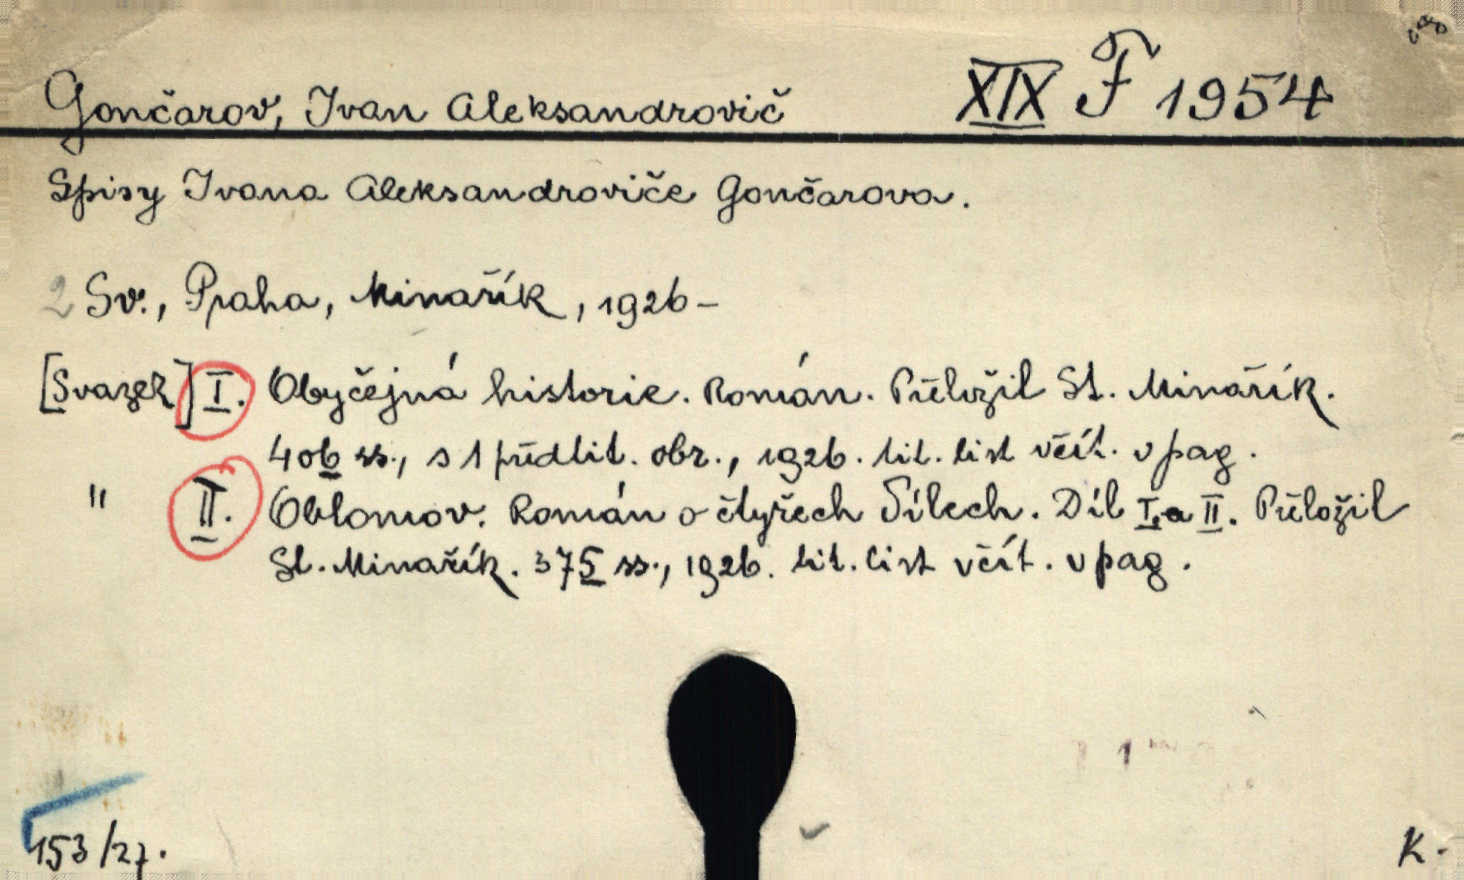 Gončarov, Ivan Aleksandrovič XIX F 1954
Spisy Ivana Aleksandroviče Gončarova.
2 Sv., Praha, Minařík, 1926–
[Svazek] I. Obyčejná historie. Román. Přeložil St. Minařík.
406 ss., s 1 předtit. obr., 1926. tit. list včít. v pag.
" II. Oblomov. Román o čtyřech dílech. Díl I. a II. Přeložil
St. Minařík. 375 ss., 1926. tit. list včít. v pag.
153/27. K.